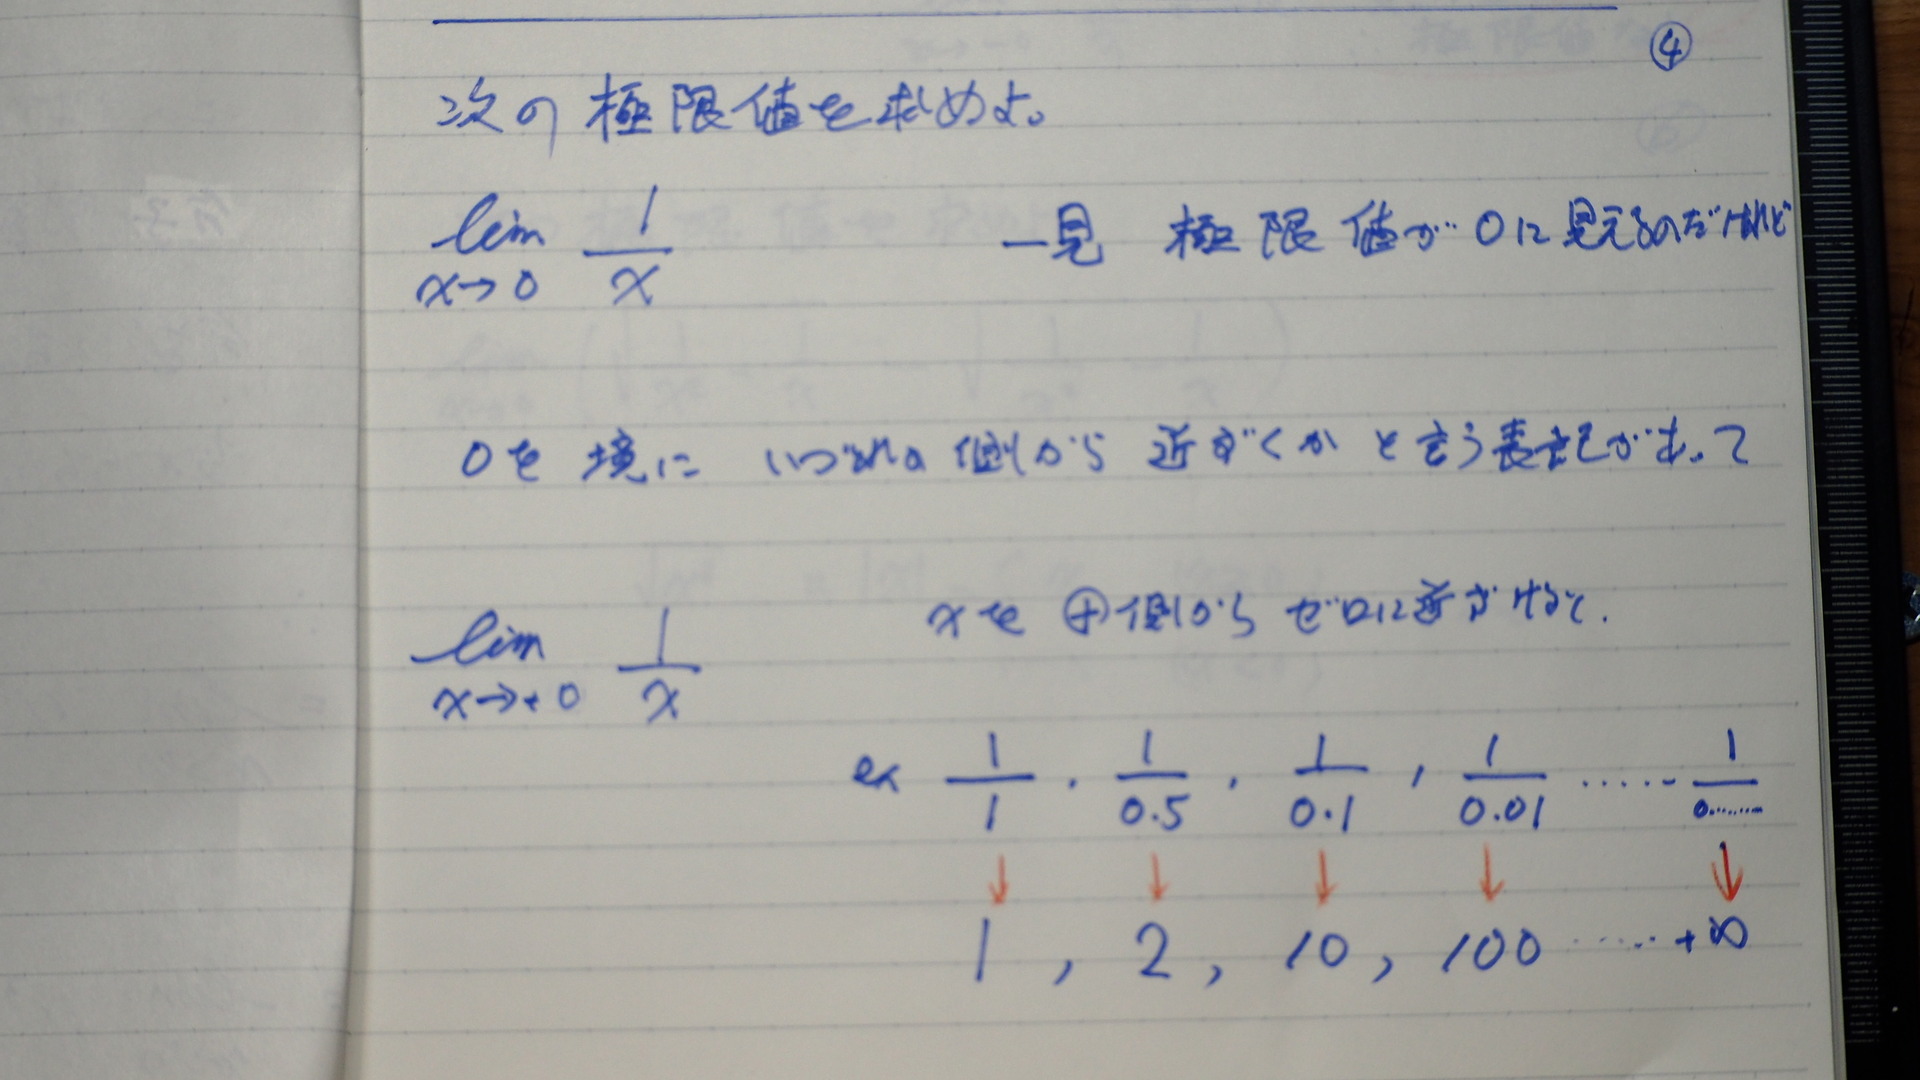 ④
次の極限値を求めよ。
lim x→0 1/x 一見 極限値が0に見えるのだけれど
0を境に いづれの側から近づくかと言う表記があって
lim x→+0 1/x xを⊕側からゼロに近づけると.
ex 1/1 , 1/0.5 , 1/0.1 , 1/0.01 ...... 1/0.........
↓ ↓ ↓ ↓ ↓
1 , 2 , 10 , 100 ...... +∞